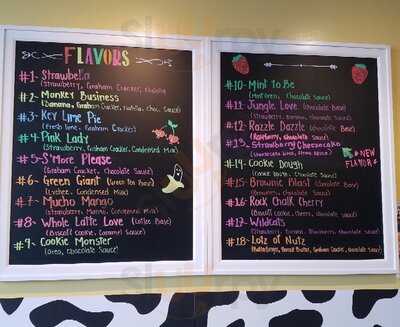 FLAVORS
#1- Strawbella
(Strawberry, Graham Cracker, Nutella)
#2- Monkey Business
(Banana, Graham Cracker, Nutella, choc. Sauce)
#3- Key Lime Pie
(Fresh lime, Graham Cracker)
#4- Pink Lady
(Strawberry, Graham Cracker, Condensed Milk)
#5- S'More Please
(Graham Cracker, Chocolate Sauce)
#6- Green Giant (Green Tea Base)
(Lychee, Condensed Milk)
#7- Mucho Mango
(Strawberry, Mango, Condensed Milk)
#8- Whole Latte Love (Coffee Base)
(Biscoff Cookie, Caramel Sauce)
#9- Cookie Monster
(Oreo, Chocolate Sauce)
#10- Mint To Be
(Mint Oreo, Chocolate Sauce)
#11- Jungle Love (Chocolate Base)
(Strawberry, Banana, Chocolate Sauce)
#12- Razzle Dazzle (Chocolate Base)
(Raspberry, Chocolate Sauce)
#13- Strawberry Cheesecake
#NEW FLAVOR#
#14- Cookie Dough
(Cookie Dough, Chocolate Sauce)
#15- Brownie Blast (Chocolate Base)
(Brownie, Chocolate Sauce)
#16- Rock Chalk Cherry
(Biscoff Cookie, Cherry, Chocolate Sauce)
#17- Wildcats
(Strawberry, Banana, Blueberry, Chocolate Sauce)
#18- Lotz of Nutz
Peanut Butter, Graham Cracker, Chocolate Sauce)